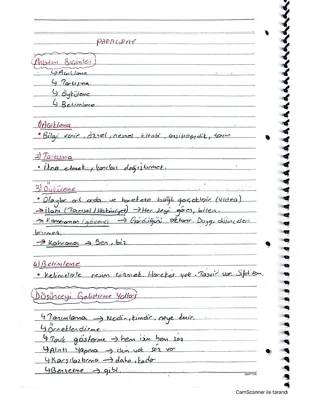 PARAGRAF
Anlatım Biçimleri
↳ Açıklama
↳ Tartışma
↳ Öyküleme
↳ Betimleme
1) Açıklama
• Bilgi verir, öznel, nesnel, kitabi, ansiklopedik, tanım
2) Tartışma
• İkna etmek, kanıları değiştirmek.
3) Öyküleme
• Olaylar art arda ve harekete bağlı geçecektir (Video)
→ İlahi (Tanrısal/Hakim) → Her şeyi gören, bilen.
→ Kameraman/gözlemci → Gördüğünü aktarır. Duygu düşünceleri
bilmez.
→ Kahraman → Ben, biz
4) Betimleme
• Kelimelerle resim çizmek. Hareket yok. Tasvir var. Sıfat
Düşünceyi Geliştirme Yolları
↳ Tanımlama → Nedir, kimdir, neye denir.
↳ Örneklendirme
↳ Tanık gösterme → hem isim hem söz
↳ Alıntı Yapma → isim yok söz var
↳ Karşılaştırma → daha, -
↳ Benzetme → gibi
CamScanner ile tarandı